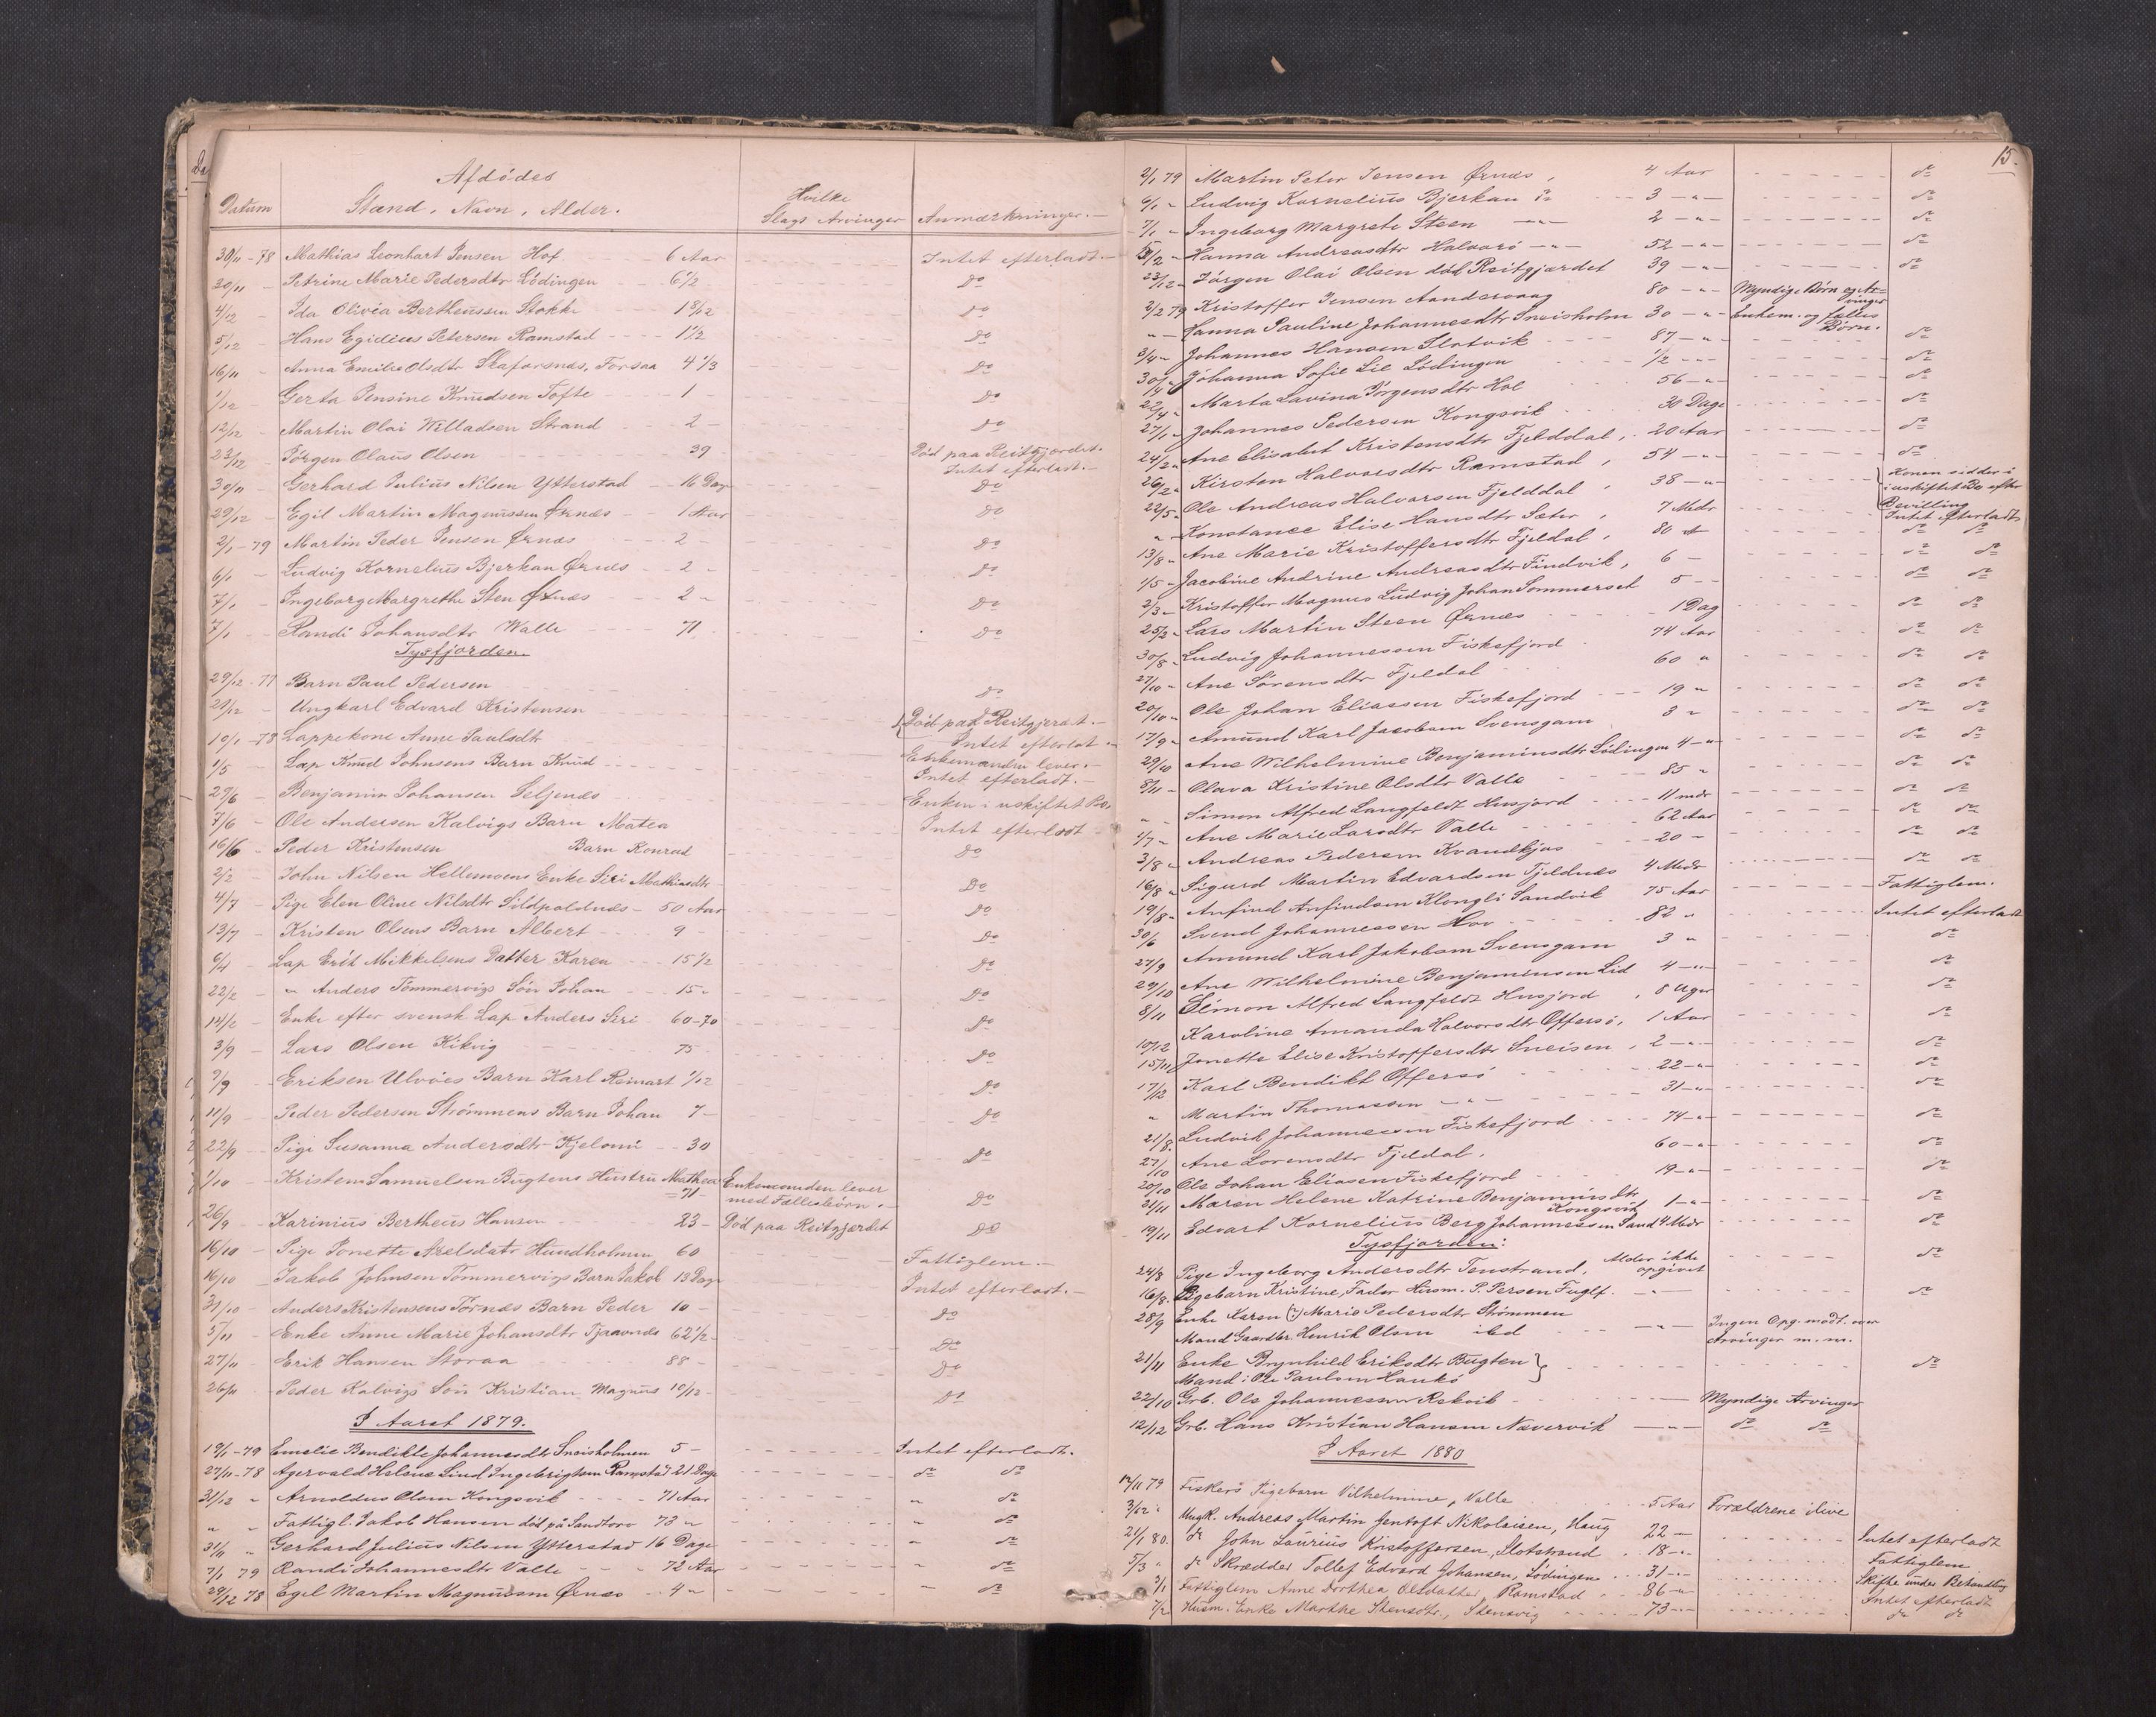 Afdödes
Datum Stand, Navn, Alder. Hvilke Slags Arvinger Anmærkninger.
30/11 - 78 Mathias Leonhart Jensen Hof 6 Aar Intet efterladt.
30/11 - Petrine Marie Pedersdtr Lödingen 6 1/2 Do
4/12 - Ida Olivia Bertheussen Stokke Do
5/12 - Hans Egidius Petersen Ramstad 1 1/2 Do
16/11 - Anna Emilie Olsdtr Skafornæs, Forsaa 4 1/3 Do
1/12 - Gerta Jensine Knudsen Tofte 1 - Do
12/12 - Martin Olai Willadsen Strand 2 - Do
23/12 - Jörgen Olaus Olsen 39 Död paa Reitgjerdet. Intet efterladt.
30/11 - Gerhard Julius Nilsen Ytterstad 16 Dage Do
29/12 - Egil Martin Magnussen Ørnæs 1 Aar Do
2/1 - 79 Martin Peder Jensen Ørnæs 2 - Do
6/1 - Ludvig Kornelius Bjerkan Ørnæs 2 - Do
7/1 - Ingeborg Margrethe Sten Ørnæs 2 - Do
7/1 - Randi Johansdtr Walle 71 Do
Tysfjorden.
29/12 - 77 Barn Paul Pedersen Do
29/12 - Ungkarl Edvard Kristensen Död paa Reitgjerdet.
10/1 - 78 Lappekone Anne Paulsdtr Intet efterlat
1/5 - Lap Knud Johnsens Barn Knud Enkemanden lever. Intet efterladt.
29/6 - Benjamin Johansen Seljenæs Enken i uskiftet Bo.
7/6 - Ole Andersen Kalvigs Barn Matea Intet efterladt
16/6 - Peder Kristensen Barn Konrad Do
2/2 - John Nilsen Hellemoens Enke Siri Mathiasdtr Do
4/7 - Pige Elen Oline Nilsdtr Sildpoldnæs - 50 Aar Do
13/7 - Kristen Olsens Barn Albert 9 - Do
6/4 - Lap Erik Mikkelsens Datter Karen 15 1/2 Do
22/2 - " Anders Tömmervigs Sön Johan 15 " Do
14/2 - Enke efter svensk Lap Anders Siri 60-70 Do
3/9 - Lars Olsen Kikvig 75 Do
7/9 - Eriksen Ulvöes Barn Karl Reinart 1/12 Do
11/9 - Peder Pedersen Strömmens Barn Johan 7 - Do
22/9 - Pige Susanna Andersdtr Kjelomi 30 Do
1/10 - Kristen Samuelsen Bugtens Hustru Mathea 71 - Enkemanden lever med Fællesbörn. Do
26/9 - Karinius Bertheus Hansen 23 - Död paa Reitgjerdet Do
16/10 - Pige Jonette Axelsdatr Hundholmen 60 Fattiglem.
16/10 - Jakob Johnsen Tömmervigs Barn Jakob 13 Dage Intet efterladt.
31/10 - Anders Kristensens Törnæs Barn Peder 10 - Do
5/11 - Enke Anne Marie Johansdtr Tjaavnæs 62 1/2 - Do
27/11 - Erik Hansen Storaa 88 - Do
26/11 - Peder Kalvigs Sön Kristian Magnus 10/12 - Do
I Aaret 1879.
19/1 - 79 Emelie Bendikte Johannesdtr Sneisholmen 5 - Intet efterladt.
27/11 - 78 Agervald Helmer Lind Ingebrigtsen Ramstad 21 Dage do do
31/12 " Arnoldus Olsen Kongsvik 71 Aar " do
" " Fattigl. Jakob Hansen död på Sandtorv 73 " " do
31/11 " Gerhard Julius Nilsen Ytterstad 16 Dage " do
7/1 79 Randi Johannesdtr Valle 72 Aar " do
29/12 78 Egil Martin Magnussen Örnæs 4 " " do
15.
2/1 79 Martin Peter Jensen Ørnæs, 4 Aar do
6/1 " Ludvig Kornelius Bjerkan do 3 - " - do
7/1 " Ingeborg Margrete Steen - " - 2 - " - do
Hanna Andreasdtr Halvarö - " - 52 - " - do
23/12 - Jörgen Olai Olsen död Reitgjærdet 39 - " - do
2/2 79 Kristoffer Jensen Aandervaag 80 - " - Myndige Børn og Arvinger
" - Hanna Pauline Johannesdtr Sneisholm 30 - " - Enkem. og fælles Børn.
3/4 " Johannes Hansen Slotvik 87 - " - do
30/4 " Johanna Sofie Lie Lödingen 1/2 - " - do
22/4 " Marta Lavina Jörgensdtr Hol 56 - " do
27/1 - Johannes Pedersen Kongsvik 30 Dage do
24/2 " Ane Elisabet Kristensdtr Fjelddal, 20 Aar do
26/2 " Kirsten Halvorsdtr Ramstad, 54 - " - do
22/5 " Ole Andreas Halvorsen Fjelddal 38 - " Konen sidder i uskiftet Bo efter Bevilling
" - Konstance Elise Hansdtr Sæter, 7 Mdr Intet efterladt
13/8 - Ane Marie Kristoffersdtr Fjeldal, 80 A do do
1/5 - Jacobine Andrine Andreasdtr Findvik, 6 - do do
2/3 - Kristoffer Magnus Ludvig Johan Sommerset 5 - do do
25/2 - Lars Martin Steen Ørnæs 1 Dag do do
30/8 - Ludvig Johannessen Fiskefjord 74 Aar do do
27/10 - Ane Sörensdtr Fjeldal 60 " do do
20/10 " Ole Johan Eliassen Fiskefjord 19 " do do
17/9 " Amund Karl Jacobsen Svensgam 3 " do do
29/10 Ane Wilhelmine Benjaminsdtr Lödingen 4 - " do do
8/11 - Olava Kristine Olsdtr Valle 85 " do do
" " Simon Alfred Langfeldt Husjord 11 mdr do do
1/7 " Ane Marie Larsdtr Valle 62 Aar do do
3/8 " Andreas Pedersen Kvandkjos 20 - do do
16/8 " Sigurd Martin Edvardsen Tjeldnæs 4 Mdr do do
19/8 " Anfind Anfindsen Klongli Sandvik 75 Aar Fattiglem.
30/6 Svend Johannessen Hov 82 " Intet efterladt
27/9 Amund Karl Jakobsen Svensgam 3 " do
29/10 Ane Wilhelmine Benjaminsen Lid 4 - " - do
8/11 Simon Alfred Langfeldt Husjord, 8 Uger do
10/12 Karoline Amanda Halvorsdtr Offersö, 1 Aar do
15/11 Jonette Elise Kristoffersdtr Sneisen, 2 - " - do
17/12 Karl Bendikt Offersö 22 - " - do
" Martin Thomassen - " - 31 - " - do
21/8. Ludvik Johannessen Fiskefjord 74 - " do
27/10 Ane Lorensdtr Fjeldal. 60 - " do
20/10 Ole Johan Eliasen Fiskefjord 19 - " do
21/11 Maren Helene Katrine Benjaminsdtr Kongsvik 1 - " do
19/11 Edvart Kornelius Berg Johannessen Sand 4 Mdr do
Tysfjorden:
24/8 Pige Ingeborg Andersdtr Tenstrand, Alder ikke opgivet do
16/8. Pigebarn Kristine, Fader Husm. P. Persen Fuglf. - " - do
28/9 Enke Karen (?) Marie Pedersdtr Strömmen
Mand Gaardbr. Henrik Olsen ibd - " - Ingen Opg. modt. over Arvinger m. m.
21/11 Enke Brynhild Eriksdtr Bugten
Mand: Ole Paulsen Haukö do
22/10 Grb. Ole Johannessen Rekvik - Myndige Arvinger
12/12 Grb. Hans Kristian Hansen Nævervik - " - do do
I Aaret 1880
12/11 79 Fiskers Pigebarn Vilhelmine, Valle 5 Aar Forældrene ilive
3/12 " Ungk. Andreas Martin Jentoft Nikolaisen, Haug 22 - Intet efterladt
21/1 80. do John Laurius Kristoffersen, Slotstrand 18 - " - Fattiglem
5/3 " do Skrædder Tollef Edvard Johansen, Lödingen 31 - " - Skifte under Behandling
3/1 Fattiglem Anne Dorthea Olsdatter, Ramstad 86 - " Intet efterladt
7/2 Husm. Enke Marthe Stensdtr., Stensvig 73 - " - do do